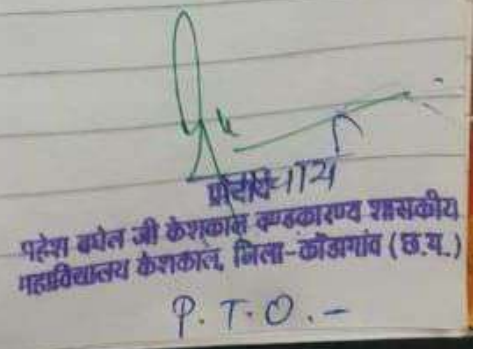 प्राचार्य
महेश बघेल जी केशकाल दण्डकारण्य शासकीय
महाविद्यालय केशकाल, जिला-कोंडागांव (छ.ग.)
P. T. O. -